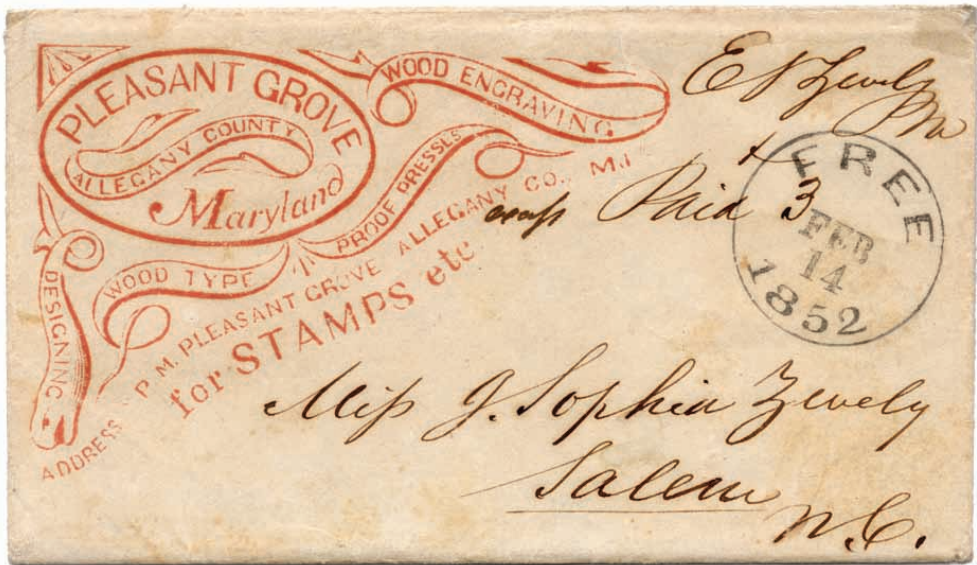 PLEASANT GROVE
ALLEGANY COUNTY
Maryland
WOOD ENGRAVING
PROOF PRESSES
WOOD TYPE
DESIGNING
ADDRESS P. M. PLEASANT GROVE ALLEGANY CO., M.
for STAMPS etc
E N Zevely
PM
Paid 3
FREE
FEB
14
1852
Miss J. Sophia Zevely
Salem
N. C.